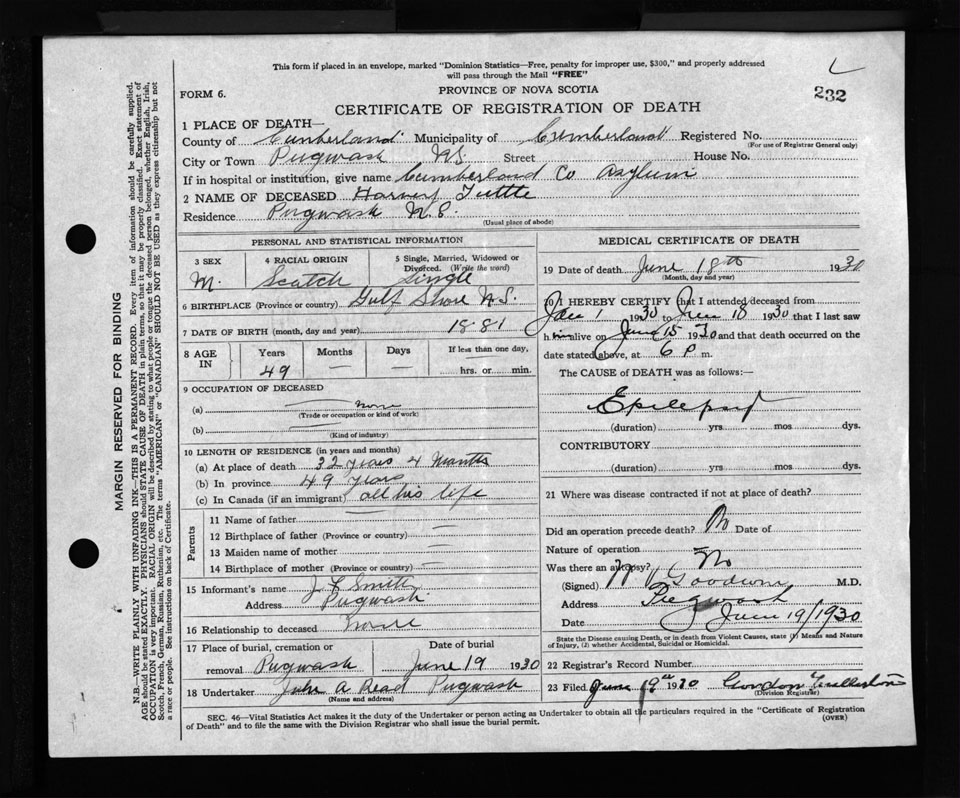 This form if placed in an envelope, marked "Dominion Statistics—Free, penalty for improper use, $300," and properly addressed
will pass through the Mail "FREE"
FORM 6.
PROVINCE OF NOVA SCOTIA
232
CERTIFICATE OF REGISTRATION OF DEATH
1 PLACE OF DEATH—
County of Cumberland Municipality of Cumberland Registered No.
(For use of Registrar General only)
City or Town Pugwash N.S. Street House No.
If in hospital or institution, give name Cumberland Co Asylum
2 NAME OF DECEASED Harvey Tuttle
Residence Pugwash N.S.
(Usual place of abode)
PERSONAL AND STATISTICAL INFORMATION
3 SEX 4 RACIAL ORIGIN 5 Single, Married, Widowed or
Divorced. (Write the word)
M. Scotch Single
6 BIRTHPLACE (Province or country) Gulf Shore N.S.
7 DATE OF BIRTH (month, day and year) 1881
8 AGE IN Years Months Days If less than one day,
49 — — hrs. or min.
9 OCCUPATION OF DECEASED
(a) None
(Trade or occupation or kind of work)
(b) —
(Kind of industry)
10 LENGTH OF RESIDENCE (in years and months)
(a) At place of death 32 years 4 Months
(b) In province 49 years
(c) In Canada (if an immigrant) all his life
Parents
11 Name of father —
12 Birthplace of father (Province or country) —
13 Maiden name of mother —
14 Birthplace of mother (Province or country) —
15 Informant's name Smith
Address Pugwash
16 Relationship to deceased None
17 Place of burial, cremation or Date of burial
removal Pugwash June 19 1930
18 Undertaker John A Read Pugwash
(Name and address)
MEDICAL CERTIFICATE OF DEATH
19 Date of death June 18th 1930
(Month, day and year)
20 I HEREBY CERTIFY that I attended deceased from
Jan 1 1930 to June 18 1930 that I last saw
him alive on June 15 30 and that death occurred on the
date stated above, at 6 P m.
The CAUSE of DEATH was as follows:—
Epilepsy
(duration) yrs mos dys.
CONTRIBUTORY
(duration) yrs mos dys.
21 Where was disease contracted if not at place of death?
Did an operation precede death? No Date of
Nature of operation
Was there an autopsy? No
(Signed) Goodwin M.D.
Address Pugwash
Date June 19/1930
State the Disease causing Death, or in death from Violent Causes, state (1) Means and Nature
of Injury, (2) whether Accidental, Suicidal or Homicidal.
22 Registrar's Record Number
23 Filed June 19th 1930 Gordon
(Division Registrar)
SEC. 46—Vital Statistics Act makes it the duty of the Undertaker or person acting as Undertaker to obtain all the particulars required in the "Certificate of Registration
of Death" and to file the same with the Division Registrar who shall issue the burial permit.
(OVER)
MARGIN RESERVED FOR BINDING
N.B.—WRITE PLAINLY WITH UNFADING INK—THIS IS A PERMANENT RECORD. Every item of information should be carefully supplied.
AGE should be stated EXACTLY. PHYSICIANS should STATE CAUSE OF DEATH in plain terms, so that it may be properly classified. Exact statement of
OCCUPATION is very important. RACIAL ORIGIN will be described by stating to what people or tongue the deceased person belonged, whether English, Irish,
Scotch, French, German, Russian, Ruthenian, etc. The terms "AMERICAN" or "CANADIAN" SHOULD NOT BE USED as they express citizenship but not
a race or people. See instructions on back of Certificate.